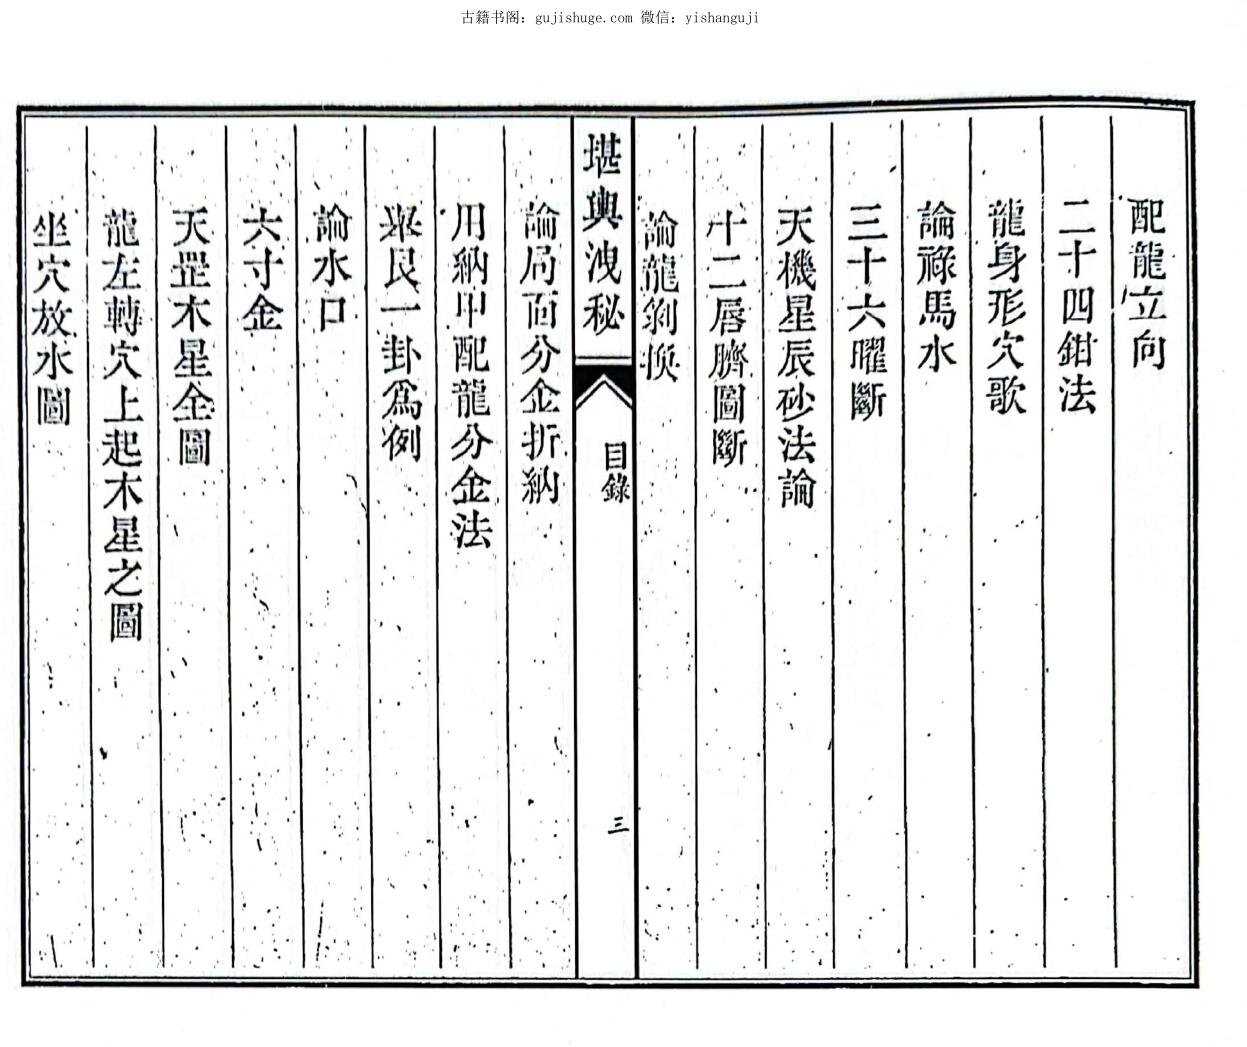 古籍书阁：gujishuge.com 微信：yishanguji
配龍立向
二十四鉗法
龍身形穴歌
論祿馬水
三十六曜斷
天機星辰砂法論
十二唇臍圖斷
論龍剝換
堪輿洩秘
目錄
三
論局面分金折納
用納甲配龍分金法
舉艮一卦爲例
論水口
六寸金
天罡木星全圖
龍左轉穴上起木星之圖
坐穴放水圖